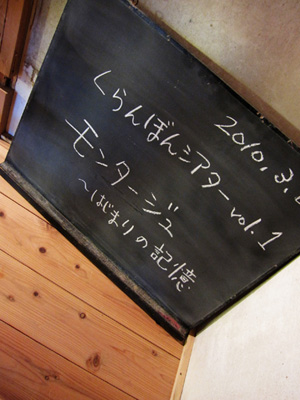 2010.3.
くらんぼんシアターvol.1
モンタージュ
～はじまりの記憶